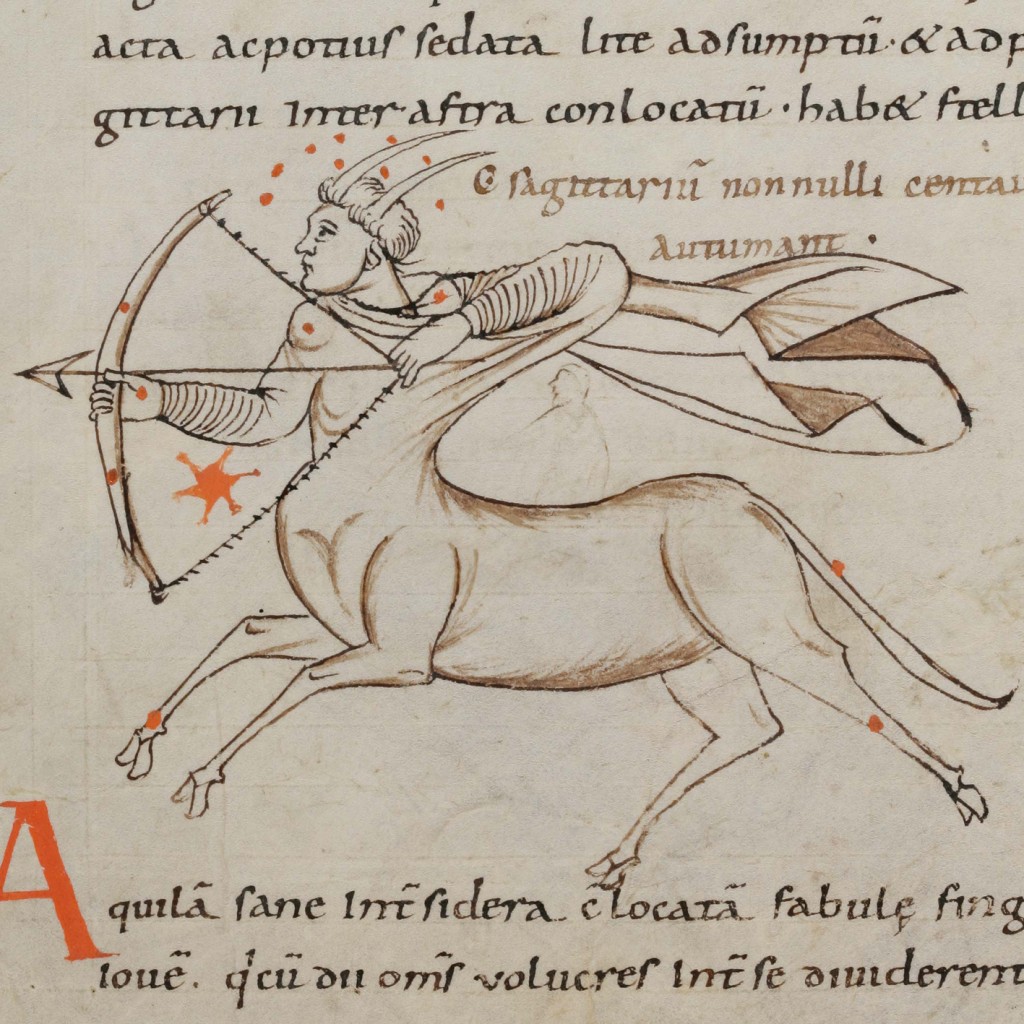 acta acpotius sedata lite adsumptū · & adp
gittarii inter astra conlocatū · hab& stell
E sagittariū nonnulli centau
autumant ·
Aquilā sane int̄ sidera c̄locatā fabulę fing
iouē . q'cū dii om̄s volucres int̄ se dividerent